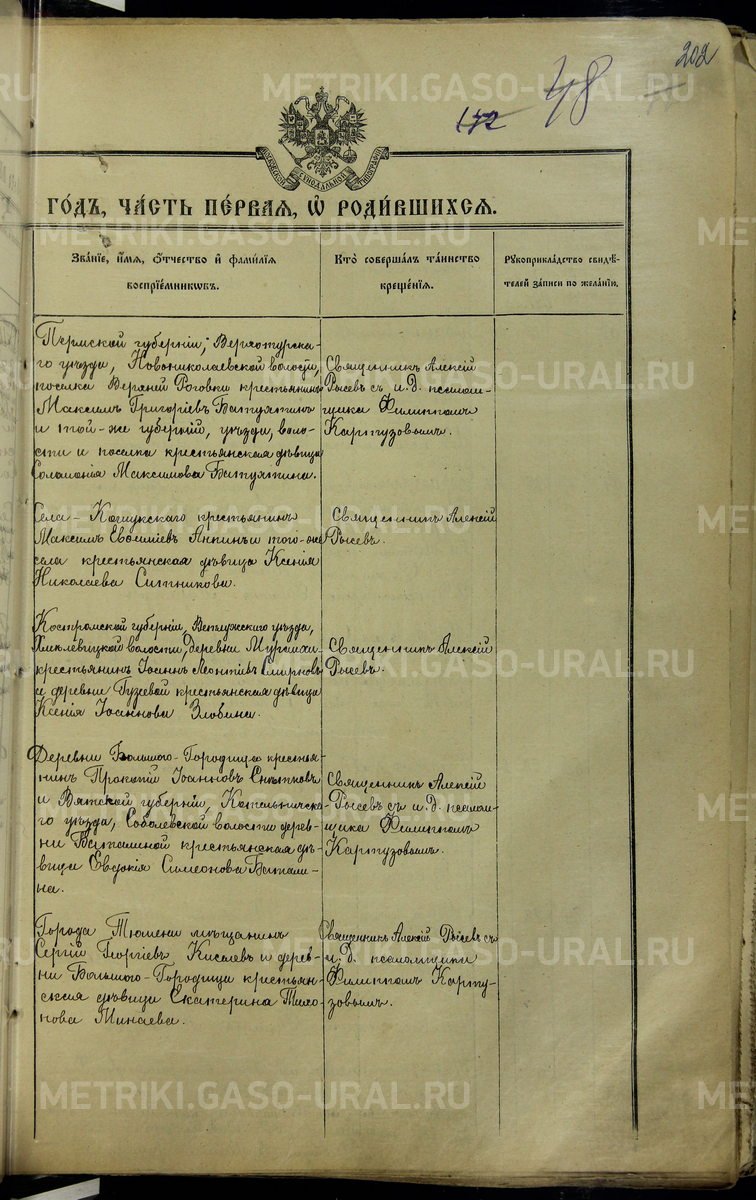 202
48
172
METRIKI.GASO-URAL.RU
МОСКОВСКОЙ СѴНОДАЛЬНОЙ ТИПОГРАФІИ
ГО́ДЪ, ЧА́СТЬ ПЕ́РВАЯ, Ѽ РОДИ́ВШИХСЯ.
Зва́нїе, и́мя, ѻ҆́тчество и҆ фамѝлїя
воспрїе́мникѡвъ.
Кто̀ совершáлъ тáинство
крещéнїя.
Рꙋкоприклáдство свидѣ́-
телей зáписи по желáнїю.
Пермской губерніи, Верхотурска-
го уѣзда, Новониколаевской волости,
поселка Верхней Роговки крестьянинъ
Максимъ Григоріевъ Батулятинъ
и той-же губерніи, уѣзда, воло-
сти и поселка крестьянская дѣвица
Соломонія Максимова Батулятина.
Священникъ Алексій
Рысевъ съ и. д. псалом-
щика Филиппомъ
Картузовымъ.
Села-Кошукскаго крестьянинъ
Максимъ Евѳиміевъ Анпинъ и того-же
села крестьянская дѣвица Ксенія
Николаева Ситникова.
Священникъ Алексій
Рысевъ.
Костромской губерніи, Ветлужскаго уѣзда,
Хмелевицкой волости, деревни
крестьянинъ Іоаннъ Леонтіевъ Смирновъ
и деревни Гузевой крестьянская дѣвица
Ксенія Іоаннова Злобина.
Священникъ Алексій
Рысевъ.
Деревни Большого-Городища крестья-
нинъ Прокопій Іоанновъ Снѣтковъ
и Вятской губерніи, Котельническа-
го уѣзда, Соболевской волости дерев-
ни Баталиной крестьянская дѣ-
вица Евдокія Симеонова Батали-
на.
Священникъ Алексій
Рысевъ съ и. д. псалом-
щика Филиппомъ
Картузовымъ.
Города Тюмени мѣщанинъ
Сергій Георгіевъ Киселевъ и дерев-
ни Большого-Городища крестьян-
ская дѣвица Екатерина Тихо-
нова Минаева.
Священникъ Алексій Рысевъ съ
и. д. псаломщика
Филиппомъ Карту-
зовымъ.
METRIKI.GASO-URAL.RU